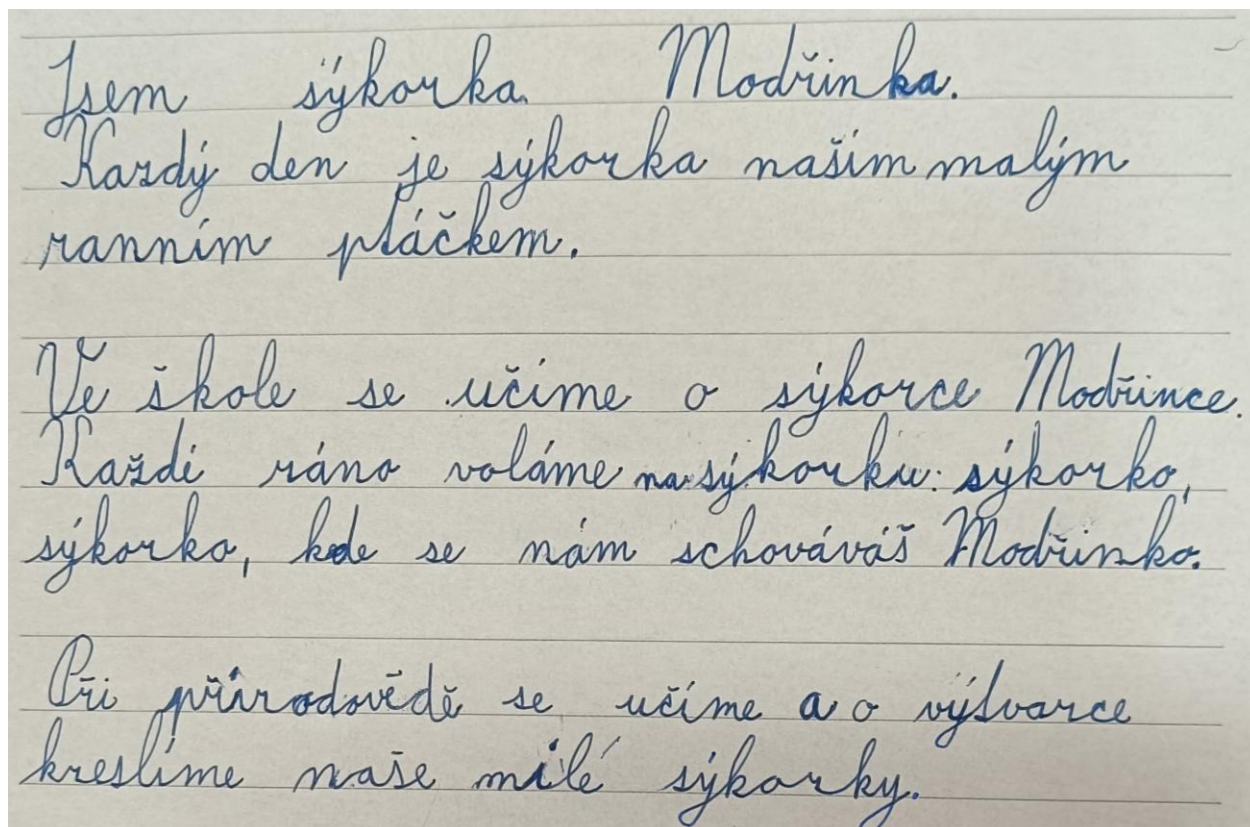 Jsem sýkorka Modřinka.
Kazdý den je sýkorka naším malým
ranním ptáčkem.
Ve škole se učíme o sýkorce Modřince.
Každé ráno voláme na sýkorku: sýkorko,
sýkorko, kde se nám schováváš Modřinko.
Při přírodovědě se učíme a o výtvarce
kreslíme naše milé sýkorky.